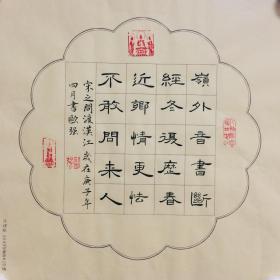 嶺外音書斷
經冬復歷春
近鄉情更怯
不敢問来人
宋之問渡漢江 歲在庚子年
四月書歐強